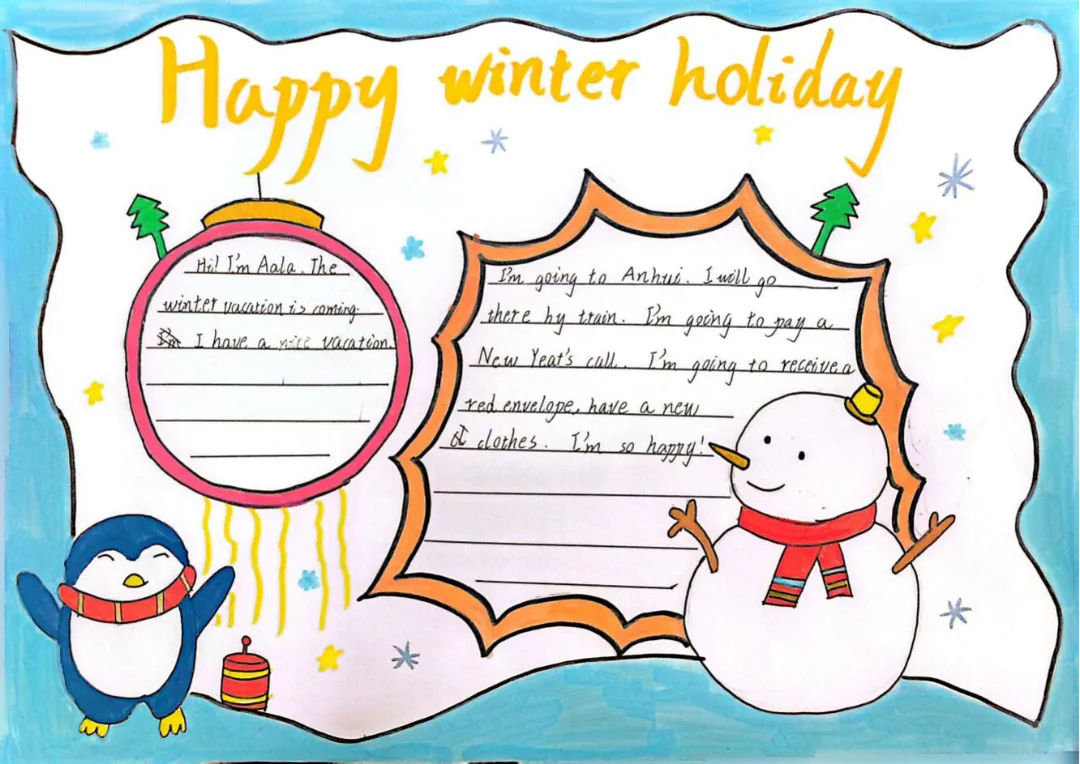 Happy winter holiday
Hi! I'm Aala. The
winter vacation is coming.
I have a nice vacation.
I'm going to Anhui. I will go
there by train. I'm going to pay a
New Year's call. I'm going to receive a
red envelope, have a new
clothes. I'm so happy!